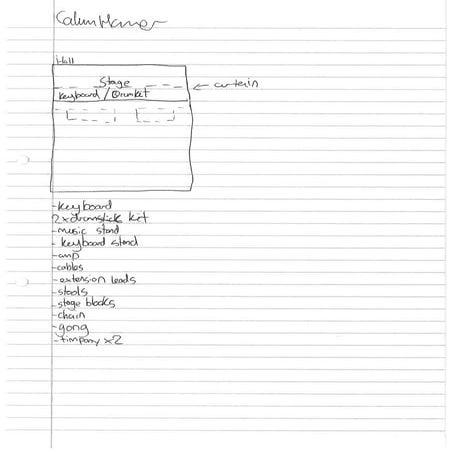 Hall
Stage
← curtain
Keyboard / Drumket
- keyboard
2x drumstick kit
- music stand
- keyboard stand
- amp
- cables
- extension leads
- stools
- stage blocks
- chain
- gong
- timpany x2